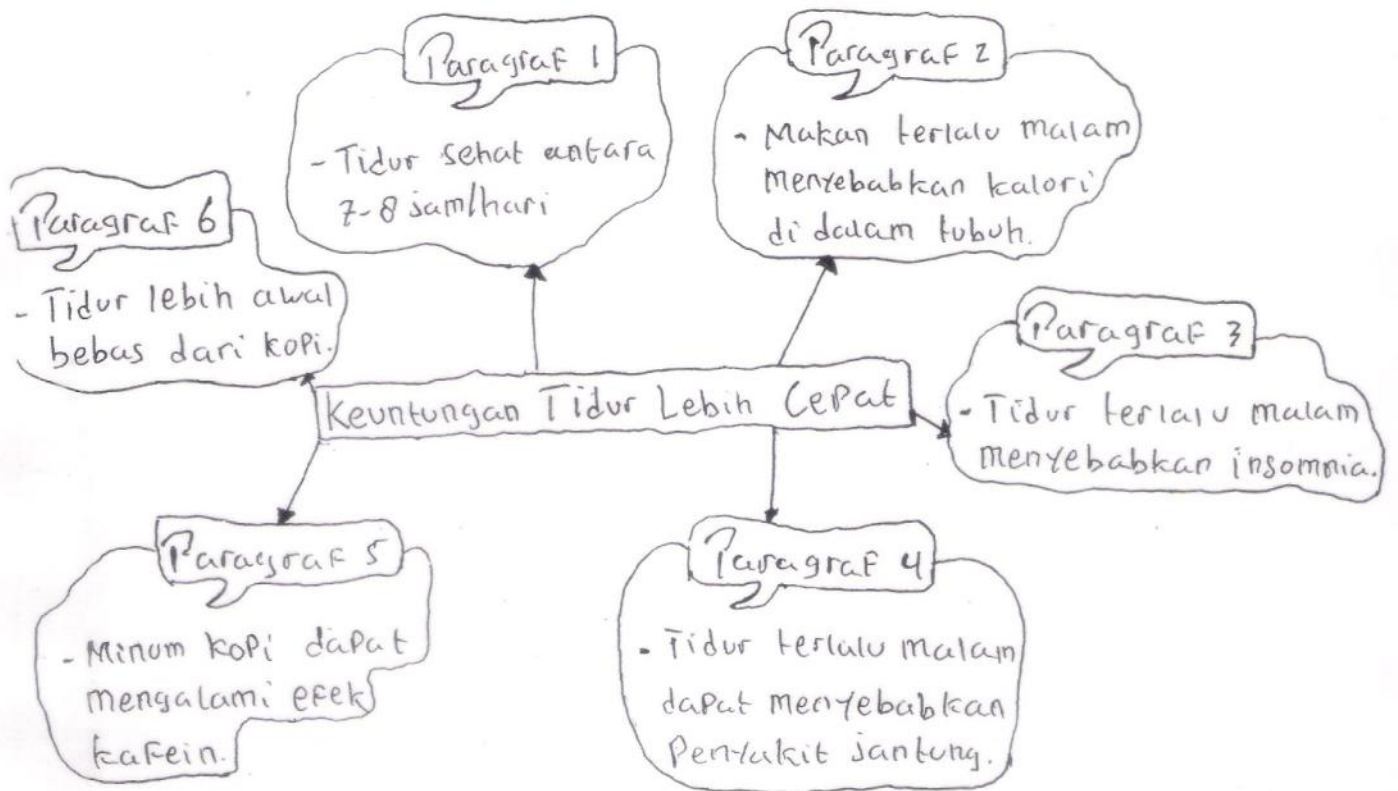 Paragraf 1
- Tidur sehat antara
7-8 jam/hari
Paragraf 2
- Makan terlalu malam
menyebabkan kalori
di dalam tubuh.
Paragraf 3
- Tidur terlalu malam
menyebabkan insomnia.
Paragraf 4
- Tidur terlalu malam
dapat menyebabkan
Penyakit jantung.
Paragraf 5
- Minum kopi dapat
mengalami efek
kafein.
Paragraf 6
- Tidur lebih awal
bebas dari kopi.
Keuntungan Tidur Lebih Cepat